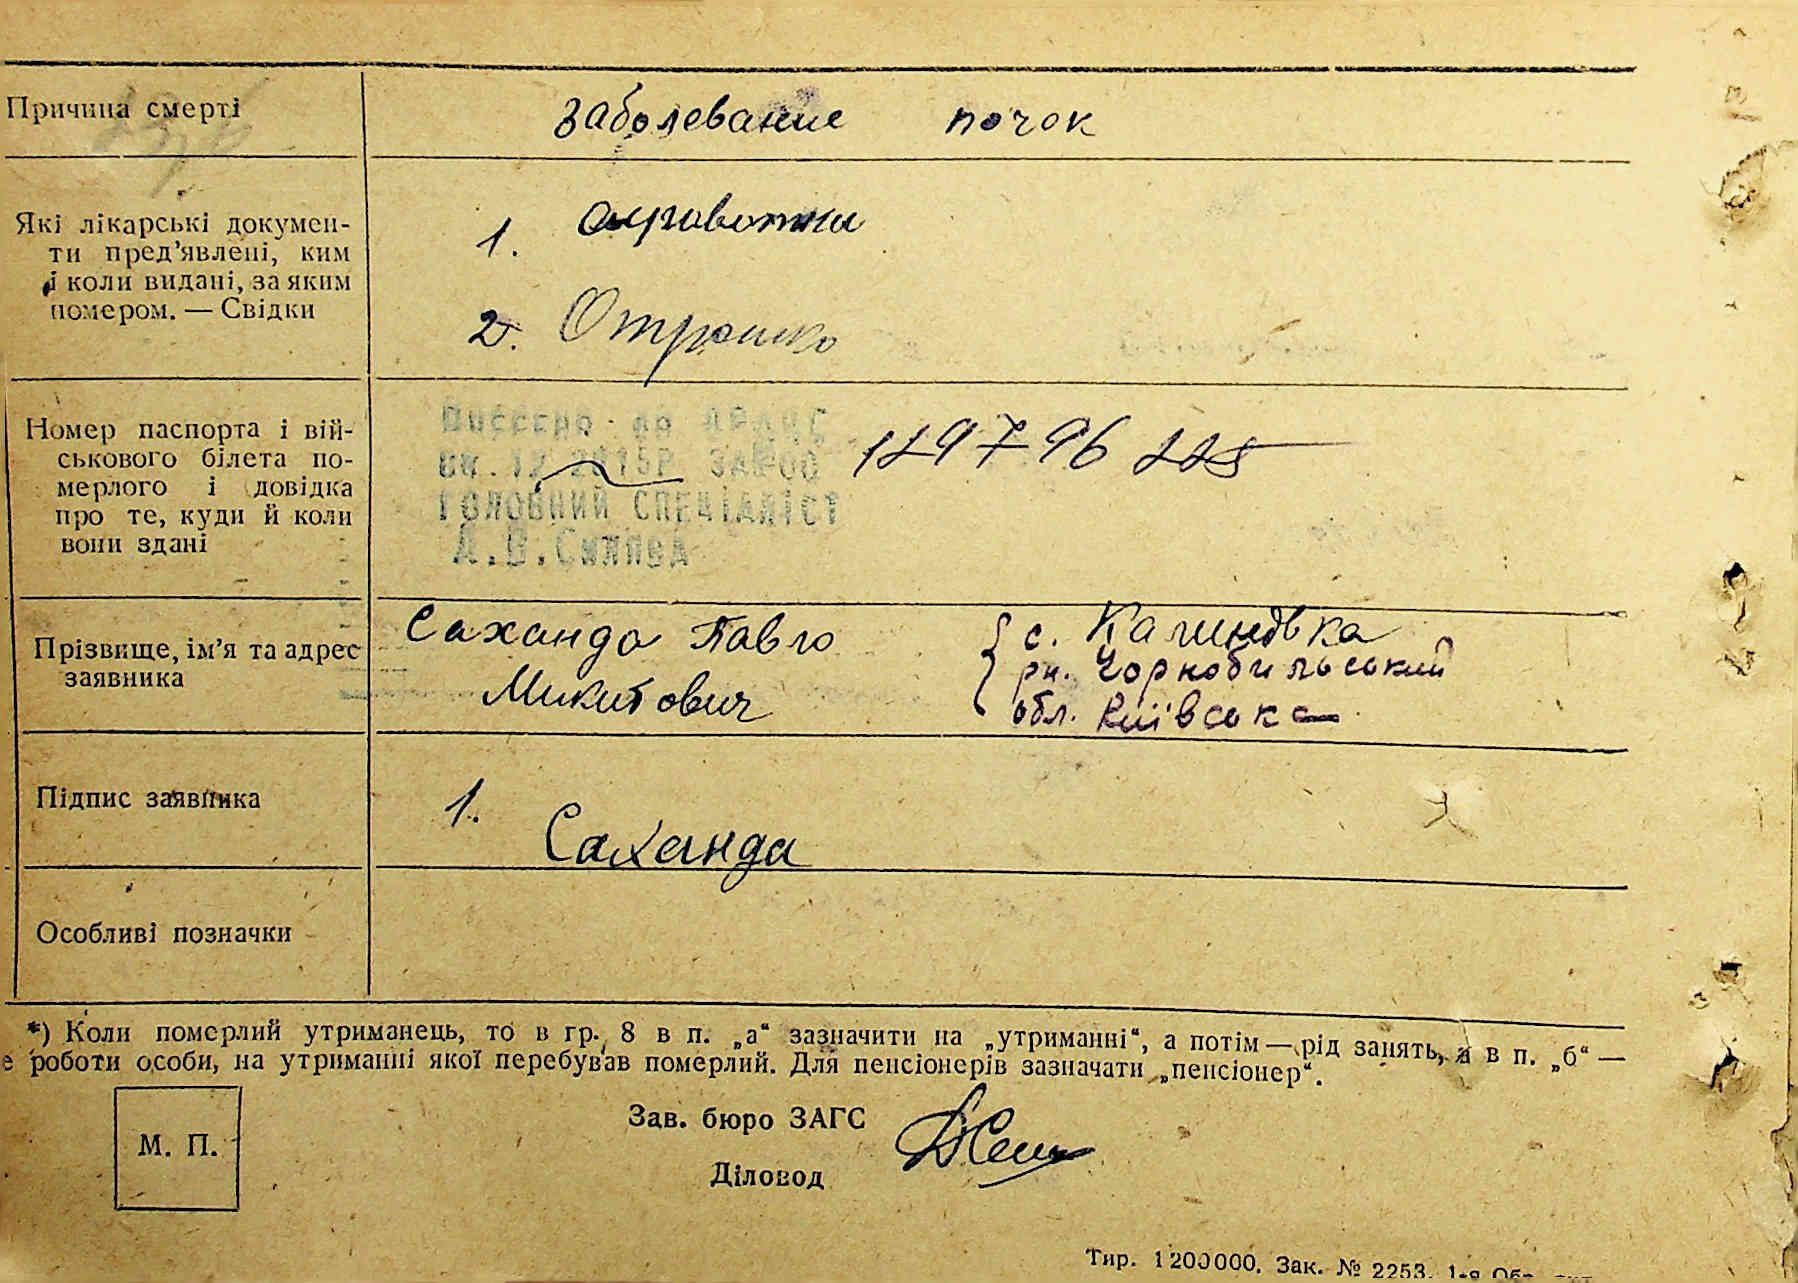 Причина смерті
заболевание почок
Які лікарські докумен-
ти пред'явлені, ким
і коли видані, за яким
номером. — Свідки
1.
2. Отрошко
Номер паспорта і вій-
ськового білета по-
мерлого і довідка
про те, куди й коли
вони здані
Внесено до ДРАЦС
ГОЛОВНИЙ СПЕЦІАЛІСТ
А.В.
Прізвище, ім'я та адрес
заявника
Саханда Павло
Микитович
с. Калиновка
рн. Чорнобильський
обл. Київська
Підпис заявника
1.
Саханда
Особливі позначки
*) Коли померлий утриманець, то в гр. 8 в п. „а“ зазначити на „утриманні“, а потім — рід занять, а в п. „б“ —
е роботи особи, на утриманні якої перебував померлий. Для пенсіонерів зазначати „пенсіонер“.
М. П.
Зав. бюро ЗАГС
Діловод
Тир. 1200000. Зак. № 2253. 1-я